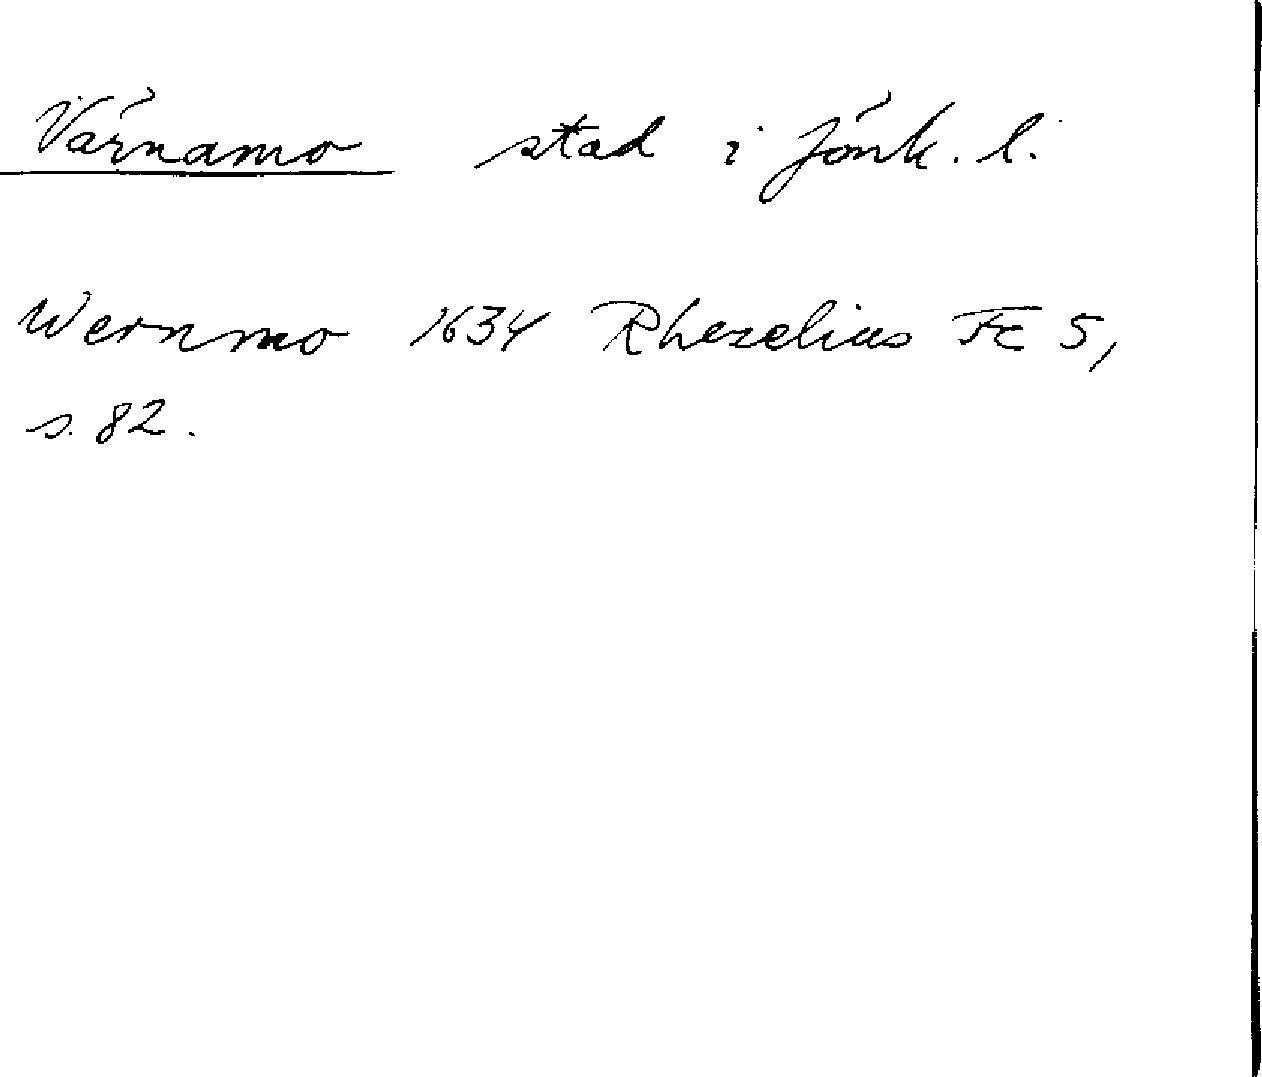 Värnamo stad i Jönk. l.
Wernmo 1634 Rhezelius Fc 5,
s. 82.